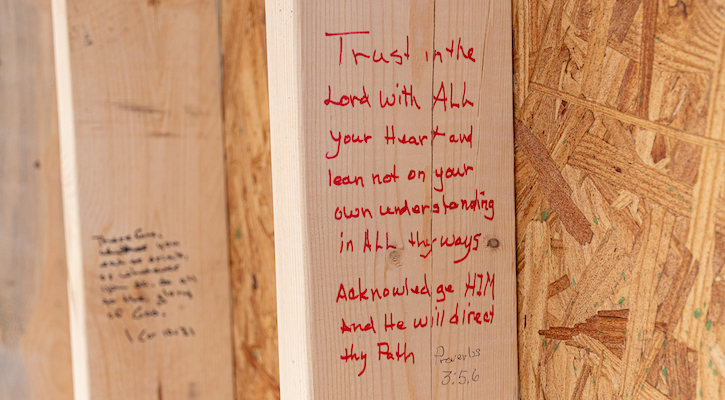 Trust in the
Lord with ALL
your Heart and
lean not on your
own understanding
in ALL thy ways
Acknowledge HIM
And He will direct
thy Path
Proverbs
3:5,6
you
or whatever
you do, do all
to the glory
of God.
1 Cor 10:31